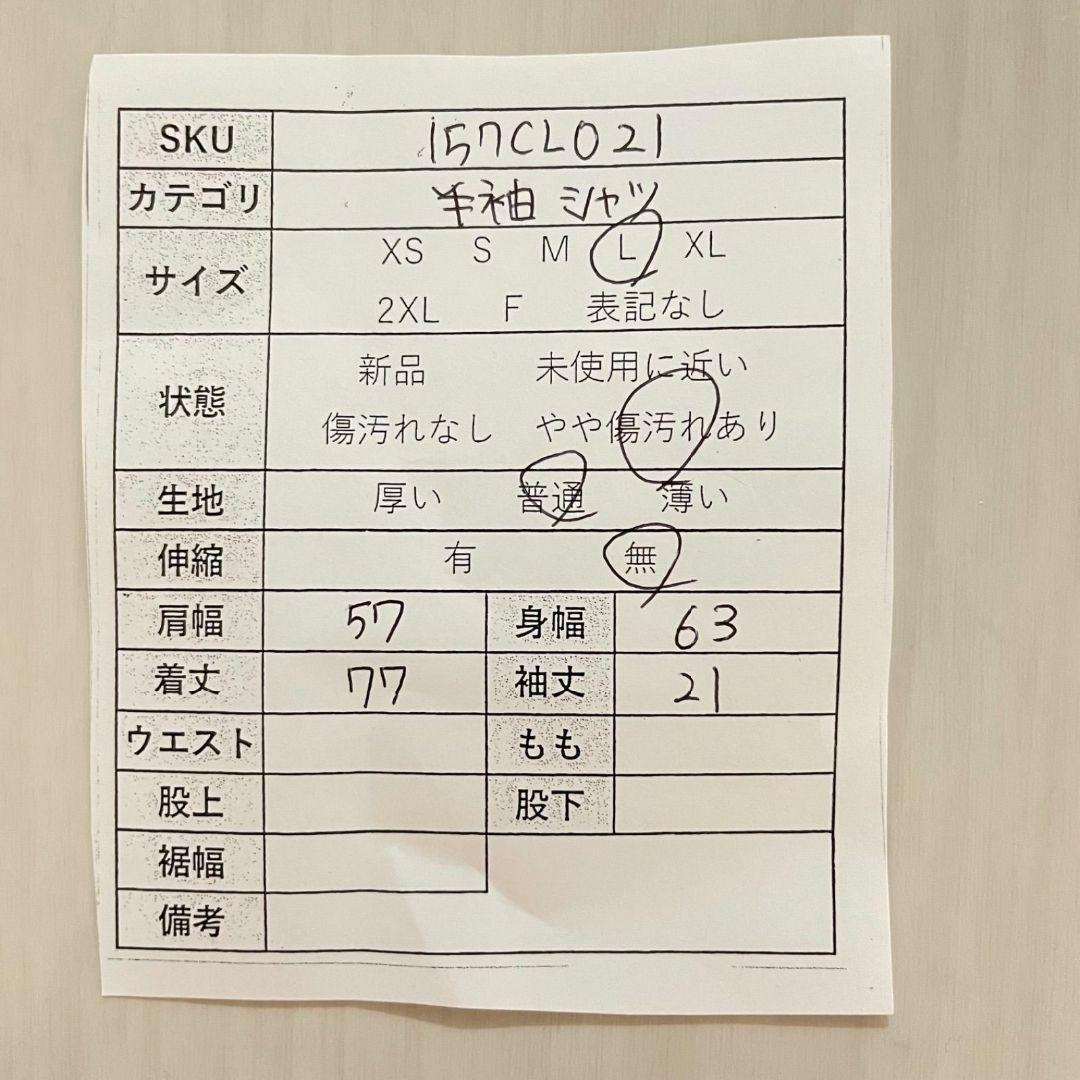 SKU 157CL021
カテゴリ 半袖 シャツ
サイズ XS S M L XL
2XL F 表記なし
状態 新品 未使用に近い
傷汚れなし やや傷汚れあり
生地 厚い 普通 薄い
伸縮 有 無
肩幅 57 身幅 63
着丈 77 袖丈 21
ウエスト もも
股上 股下
裾幅
備考